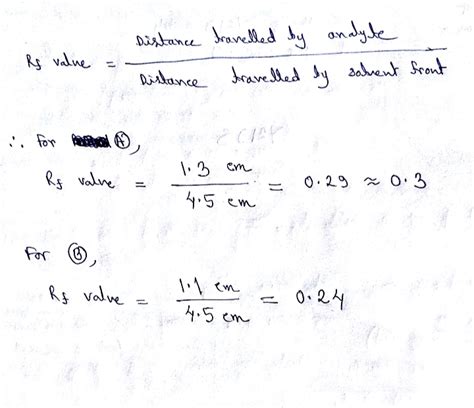 Rf value = Distance travelled by analyte / Distance travelled by solvent front
∴ For Ⓐ,
Rf value = 1.3 cm / 4.5 cm = 0.29 ≈ 0.3
For Ⓑ,
Rf value = 1.1 cm / 4.5 cm = 0.24